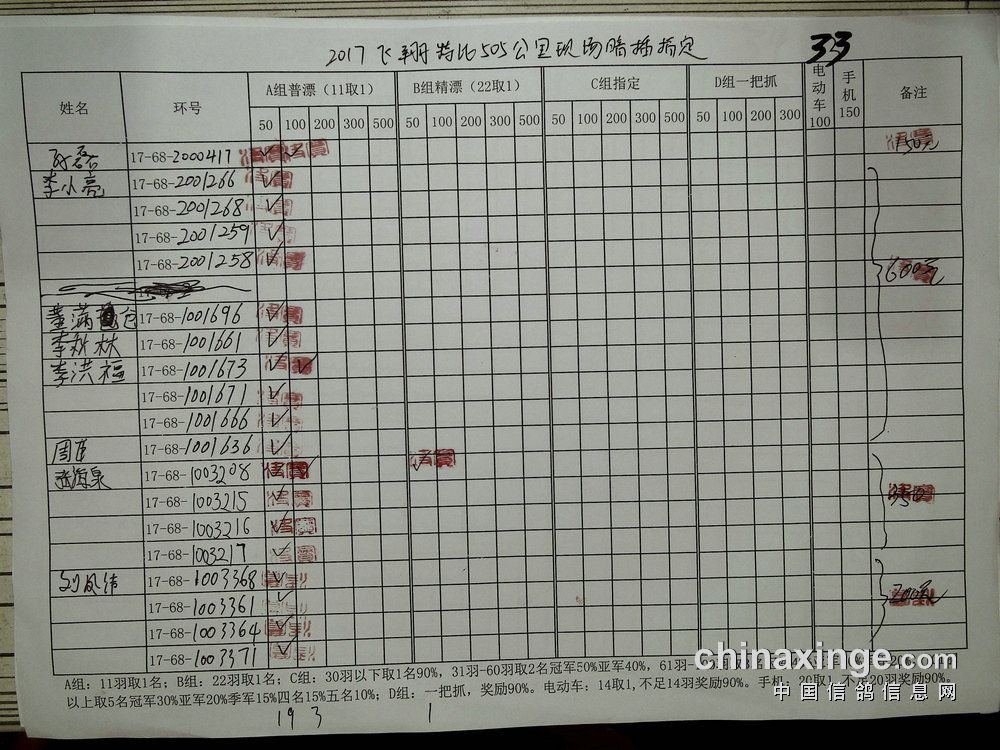 2017飞翔特比505公里现场暗插指定
33
姓名 环号 A组普漂（11取1） B组精漂（22取1） C组指定 D组一把抓 电动车100 手机150 备注
50 100 200 300 500 50 100 200 300 500 50 100 200 300 500 50 100 200 300
17-68-2000417 ✓ ✓ 150元
李小亮 17-68-2001266 ✓
17-68-2001268 ✓
17-68-2001259 ✓
17-68-2001258 ✓ 600元
董满仓 17-68-1001696 ✓
李秋林 17-68-1001661 ✓
李洪福 17-68-1001673 ✓ ✓
17-68-1001671 ✓
17-68-1001666 ✓
17-68-1001636 ✓
17-68-1003208 ✓ ✓ ✓
17-68-1003215 ✓ 350
17-68-1003216 ✓
17-68-1003217 ✓
17-68-1003368 ✓
17-68-1003361 ✓ 200元
17-68-1003364 ✓
17-68-1003371 ✓
A组：11羽取1名；B组：22羽取1名；C组：30羽以下取1名90%，31羽-60羽取2名冠军50%亚军40%，61羽
以上取5名冠军30%亚军20%季军15%四名15%五名10%；D组：一把抓，奖励90%。电动车：14取1,不足14羽奖励90%。手机：20取1,不足20羽奖励90%。
chinaxinge.com
中国信鸽信息网
19 3 1